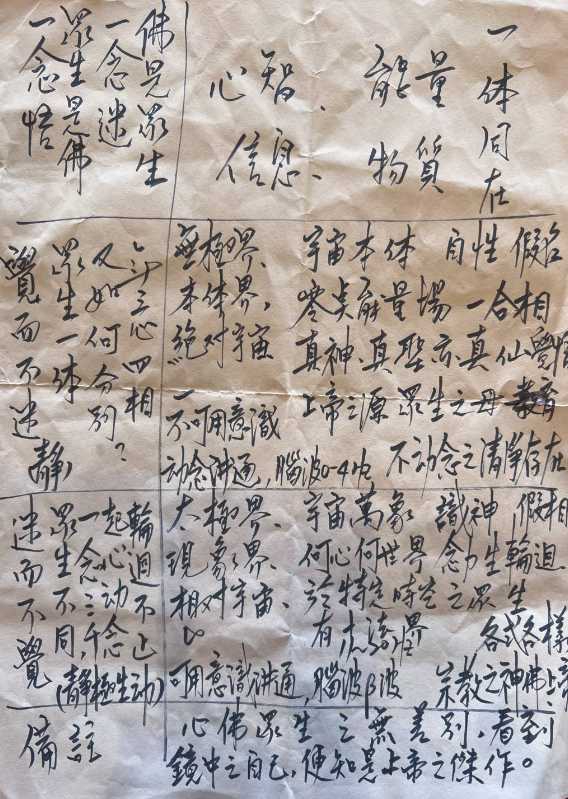 佛是眾生
一念迷
眾生是佛
一念悟
心智、能量
信息、物質
一体同在
無三心四相
又如何分別？
眾生一体
覺而不迷
(靜)
無極界、
本体界，
絕对宇宙
不可用意識
动念讲通，腦波0-4
宇宙本体 自性 假名
零点能量場 一合相
真神、真聖亦真仙覺悟
上帝之源 眾生之母 教育
不动念之清淨存在
輪迴不止
起心动念
一念三千
眾生不同
(靜極生动)
迷而不覺
太極界、
現象界、
相对宇宙、
可用意識讲通，腦波β波
宇宙萬象 識神 假相
何心何世界 念力生輪迴
於特定時空之眾生
各式各樣
宗教之神佛上帝
備註
心佛眾生之無差別，看到
鏡中之自己，便知是上帝之傑作。